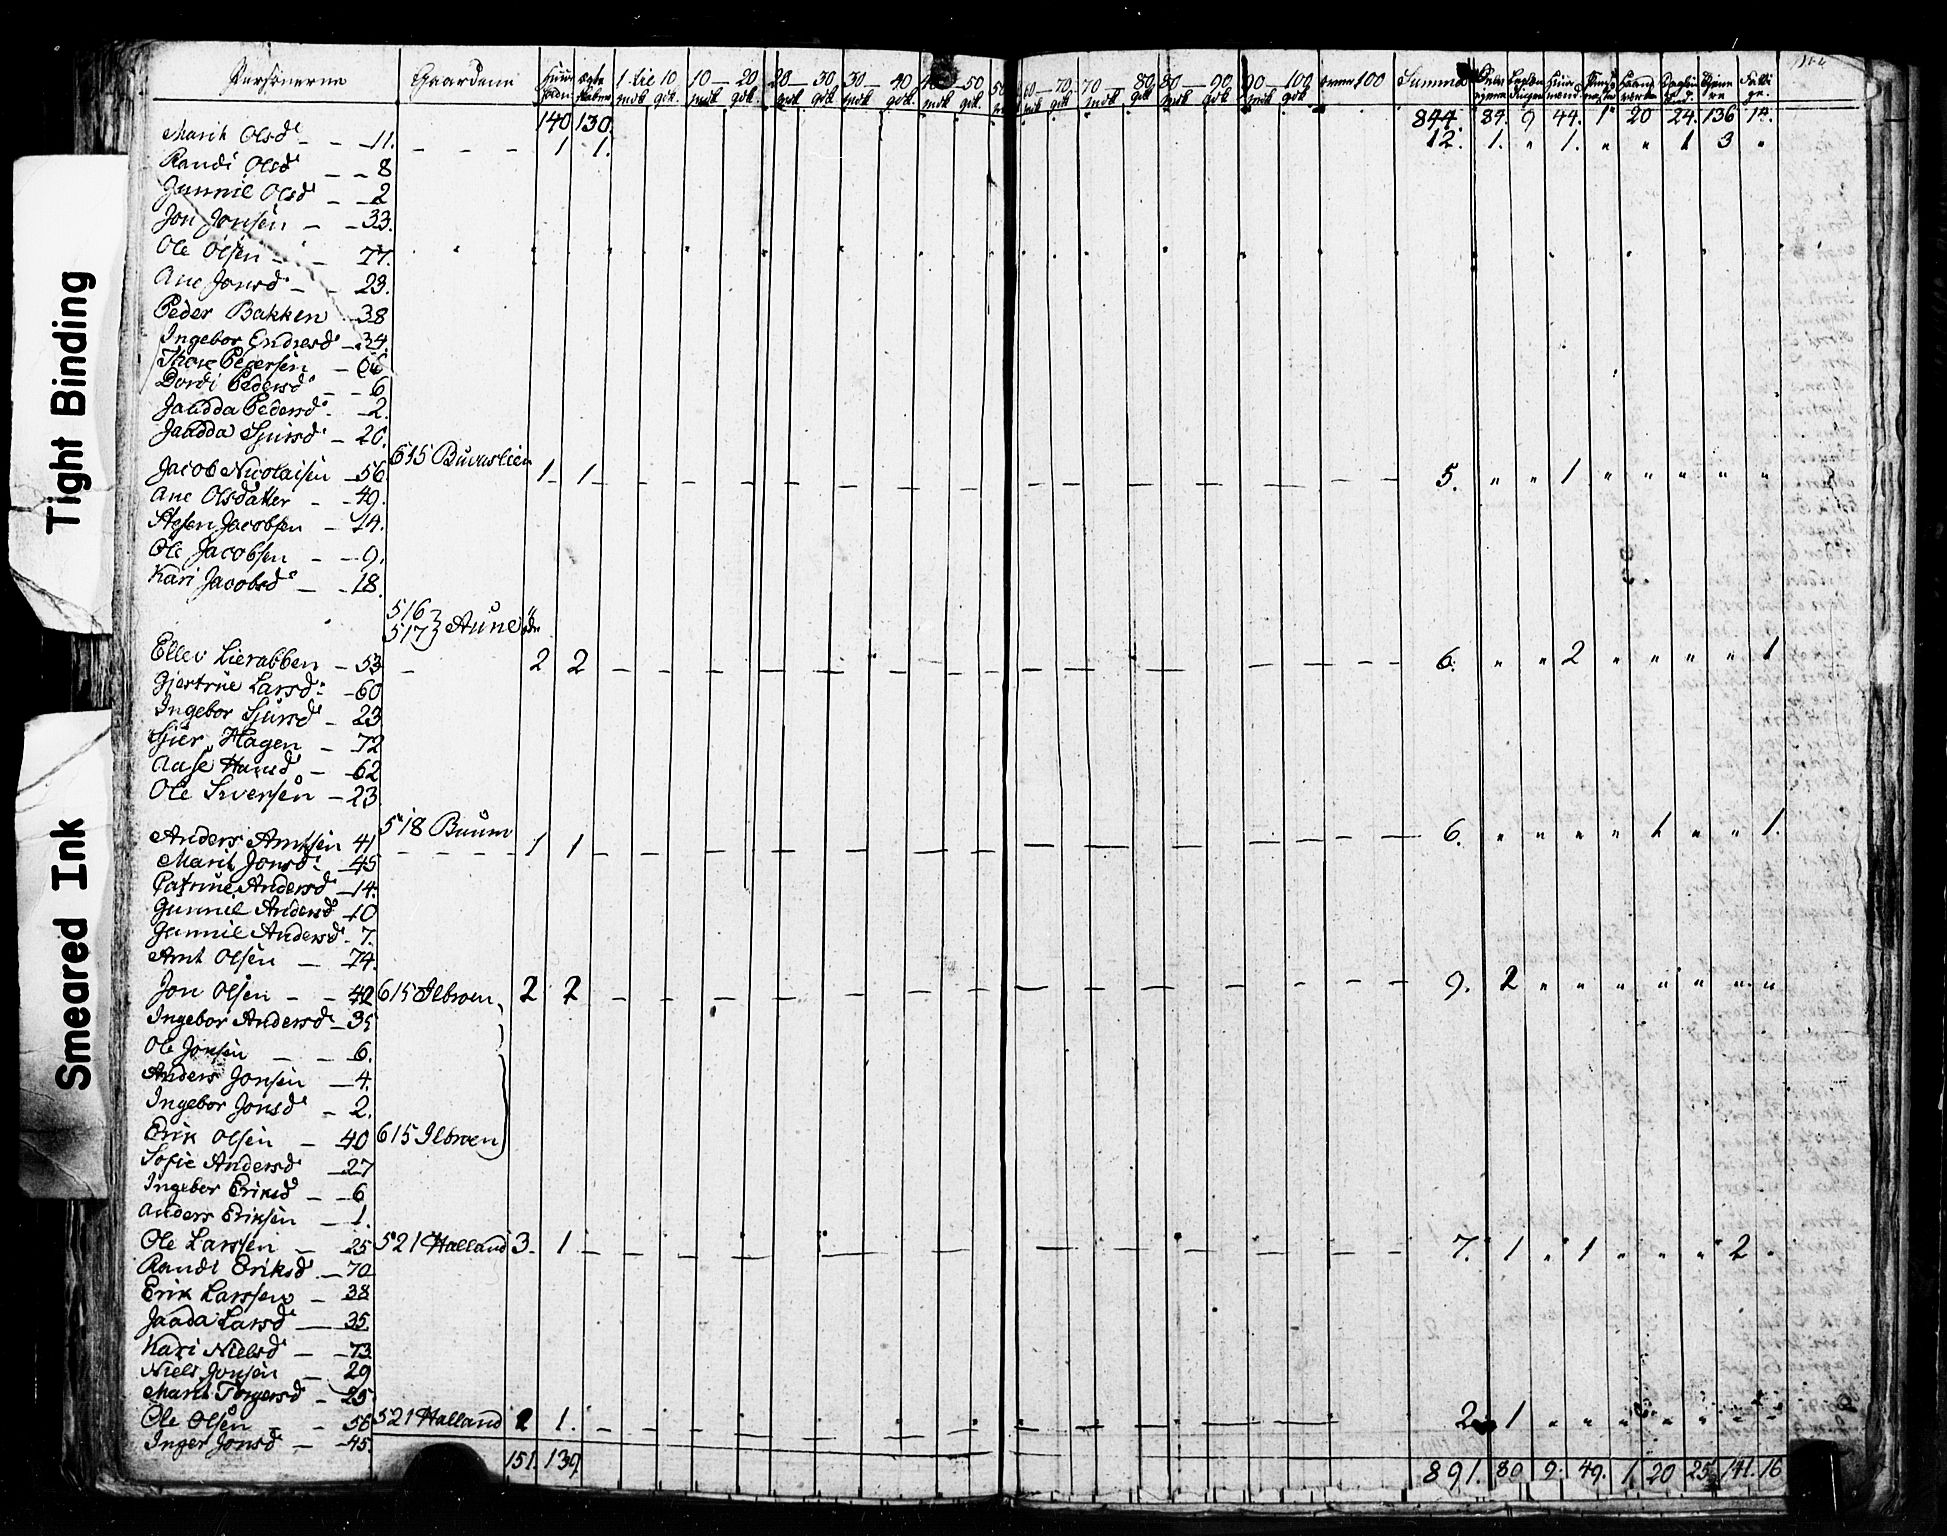 Tight Binding
Smeared Ink
Personerne Gaardene 1 til 10 10 — 20 20 — 30 30 — 40 40 — 50 60 — 70 70 — 80 80 — 90 90 — 100 over 100 Summa
mdk gdk. mdk gdk. mdk gdk. mdk gdk. mdk gdk. mdk gdk mdk gdk. mdk gdk. mdk gdk.
140 130. 844. 9 44. 1 20 24. 136 14.
Marit Olsd — — 11. — — — — 1 1. 12. 1. „ 1. „ „ 1 3 „
Randi Olsd — — 8
Gunnil Olsd — — 2
Jon Jonsen — — 33.
Ole Olsen — — 77.
Ane Jonsd — — 23.
Peder Bakken — 38
Ingebor Endresd — 34.
Thore Pedersen —
Dordi Pedersd — — 6
Jaudda Pedersd — 2.
Jaudda Sjursd — 26.
615 Buvaslien
Jacob Nicolaisen — 56 1 — 1 — 5. „ „ 1 „ „ „ „ „
Ane Olsdatter — 49.
Stefen Jacobsen — 14.
Ole Jacobsen — — 9.
Kari Jacobsd — — 18.
516
517 } Aune
Ellev Lierabben — 53 — 2 2 — 6. „ „ 2 „ „ „ „ 1
Gjertrue Larsd — 60
Ingebor Sjursd — 23
Sjur Hagen — 72
Aase Hansd — 62
Ole Siversen — 23
518 Buum
Anders Arntsen 41 — — — — 1 1 — 6. „ „ „ „ 1 „ „ 1.
Marit Jonsd — 45
Catrine Andersd — 14.
Gunnil Andersd — 10
Gunnil Andersd — 7.
Arnt Olsen — 74.
Jon Olsen — — 42 615 Ilbroen 2 2 — 9. 2 „ „ „ „ „ „ „
Ingebor Andersd — 35
Ole Jonsen — — 6.
Anders Jonsen — 4.
Ingebor Jonsd — 2.
Erik Olsen — 40 615 Ilbroen
Sofie Andersd — 27
Ingebor Eriksd — — 6
Anders Eriksen — 1.
Ole Larssen — 25 521 Halland 3. 1 — 7. 1 „ 1 „ „ „ 2 „
Randi Eriksd — 70
Erik Larssen — 38
Jaada Larsd — 35
Kari Nielsd — — 73
Niels Jonsen — 29
Marit Torgersd — 25
Ole Olsen — — 56 521 Halland 2 1. — 2 1 „ „ „ „ „ „ „
Inger Jonsd — 45.
151. 139 891. 9. 49. 1. 20 25 141. 16